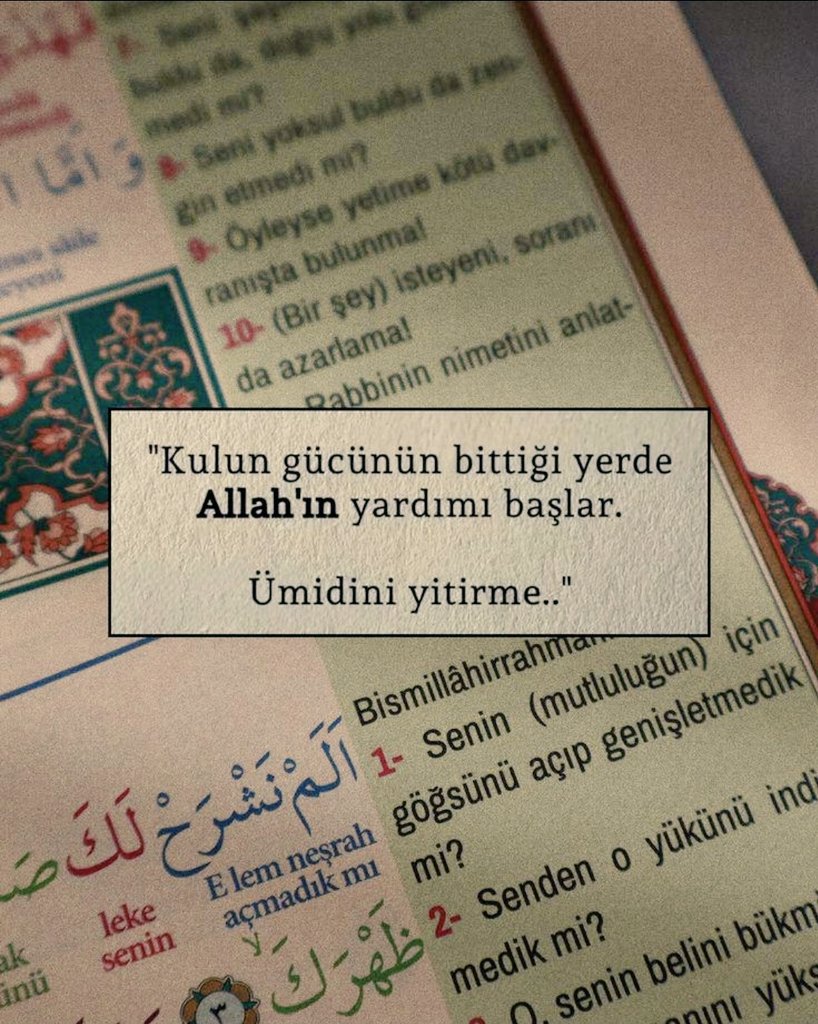 buldu da, doğru yolu
medi mi?
8- Seni yoksul buldu da zen-
gin etmedi mi?
9- Öyleyse yetime kötü dav-
ranışta bulunma!
10- (Bir şey) isteyeni, soranı
da azarlama!
Rabbinin nimetini anlat-
وَاَمَّا
"Kulun gücünün bittiği yerde
Allah'ın yardımı başlar.
Ümidini yitirme.."
Bismillâhirrahman
1- Senin (mutluluğun) için
göğsünü açıp genişletmedik
mi?
2- Senden o yükünü indi
medik mi?
O, senin belini bükm
yüks
اَلَمْ نَشْرَحْ لَكَ صَ
E lem neşrah
leke
açmadık mı
senin
ظَهْرَكَ
٣